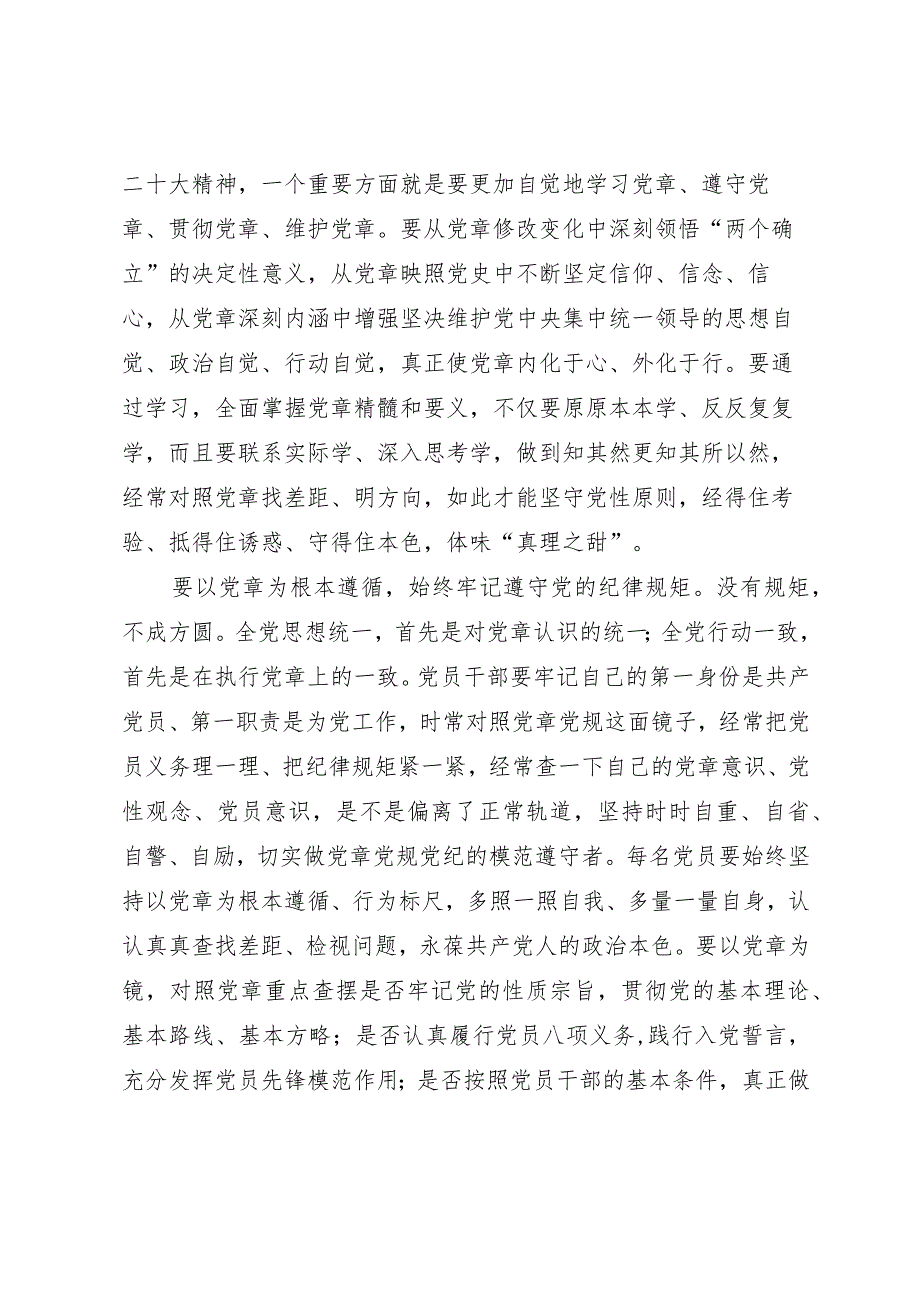 二十大精神，一个重要方面就是要更加自觉地学习党章、遵守党
章、贯彻党章、维护党章。要从党章修改变化中深刻领悟“两个确
立”的决定性意义，从党章映照党史中不断坚定信仰、信念、信
心，从党章深刻内涵中增强坚决维护党中央集中统一领导的思想自
觉、政治自觉、行动自觉，真正使党章内化于心、外化于行。要通
过学习，全面掌握党章精髓和要义，不仅要原原本本学、反反复复
学，而且要联系实际学、深入思考学，做到知其然更知其所以然，
经常对照党章找差距、明方向，如此才能坚守党性原则，经得住考
验、抵得住诱惑、守得住本色，体味“真理之甜”。
要以党章为根本遵循，始终牢记遵守党的纪律规矩。没有规矩，
不成方圆。全党思想统一，首先是对党章认识的统一；全党行动一致，
首先是在执行党章上的一致。党员干部要牢记自己的第一身份是共产
党员、第一职责是为党工作，时常对照党章党规这面镜子，经常把党
员义务理一理、把纪律规矩紧一紧，经常查一下自己的党章意识、党
性观念、党员意识，是不是偏离了正常轨道，坚持时时自重、自省、
自警、自励，切实做党章党规党纪的模范遵守者。每名党员要始终坚
持以党章为根本遵循、行为标尺，多照一照自我、多量一量自身，认
认真真查找差距、检视问题，永葆共产党人的政治本色。要以党章为
镜，对照党章重点查摆是否牢记党的性质宗旨，贯彻党的基本理论、
基本路线、基本方略；是否认真履行党员八项义务,践行入党誓言，
充分发挥党员先锋模范作用；是否按照党员干部的基本条件，真正做